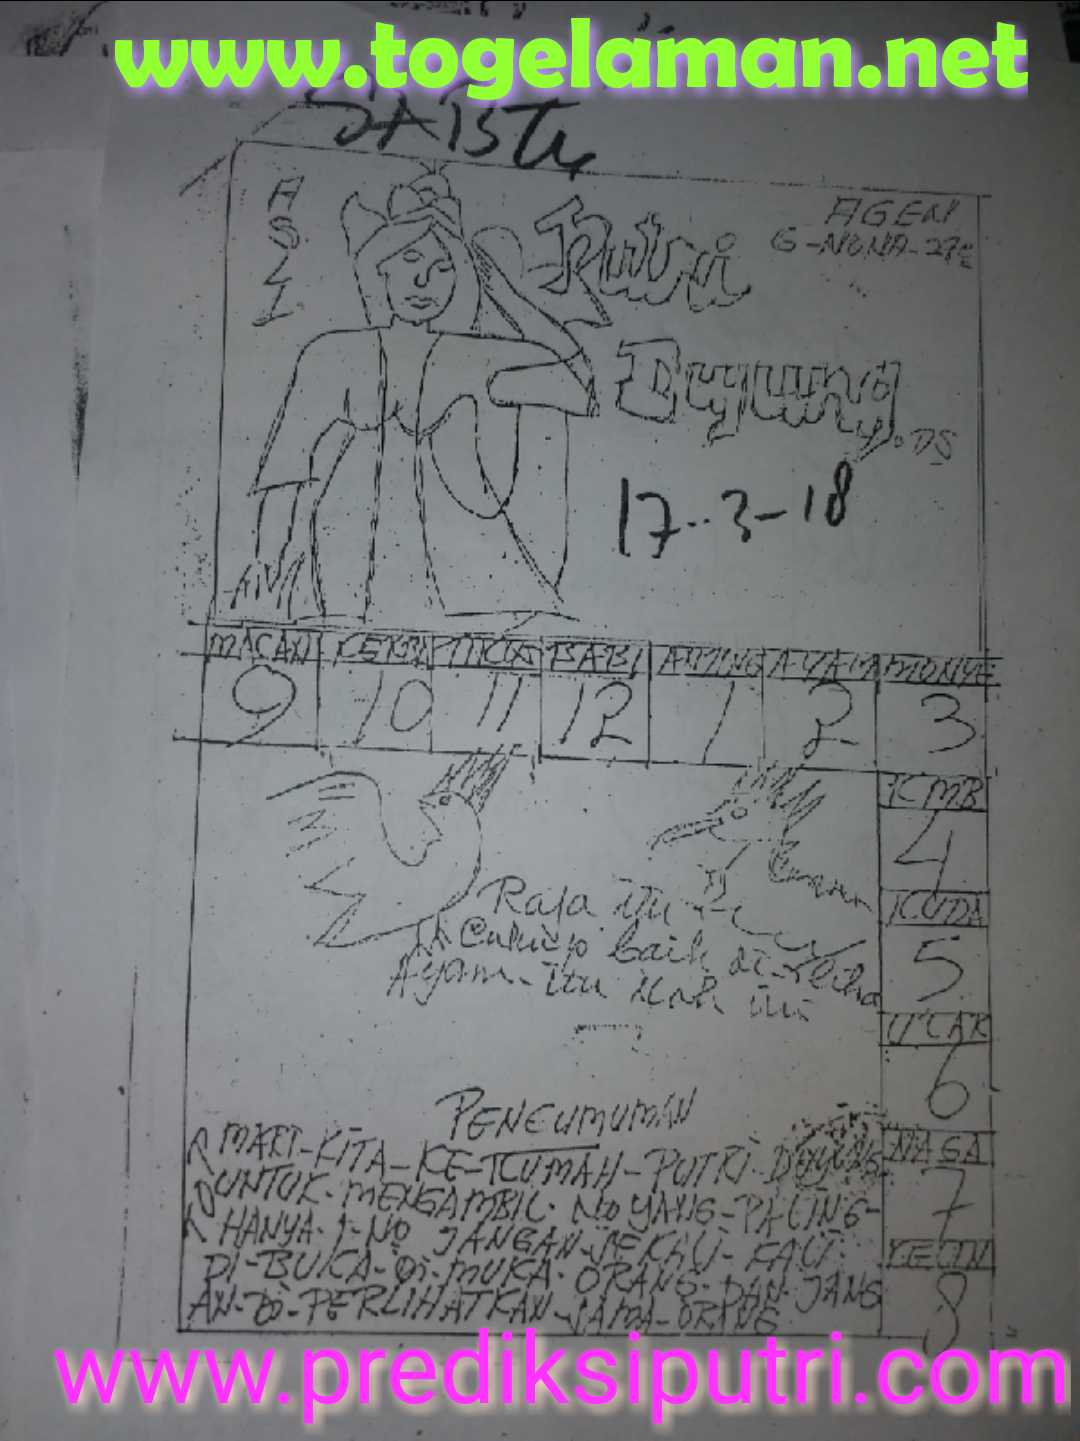 www.togelaman.net
SABTU
ASLI
Putri
AGEN
G-NONA-29
Duyung.DS
17-3-18
MACAN KERBAU TIKUS BABI ANJING AYAM MONYE
9 10 11 12 1 2 3
KMB
4
KUDA
5
U'LAR
6
NAGA
7
KECIN
8
Raja itu
Cukup baik di
Ayam - itu
PENGUMUMAN
MARI-KITA-KE-RUMAH-PUTRI-DUYUNG
UNTUK-MENGAMBIL-NO YANG-PALING-
HANYA-1-NO JANGAN-SEKALI-KALI
DI-BUKA-DI-MUKA-ORANG-DAN-JANG
AN-DI-PERLIHATKAN-SAMA-ORANG
www.prediksiputri.com